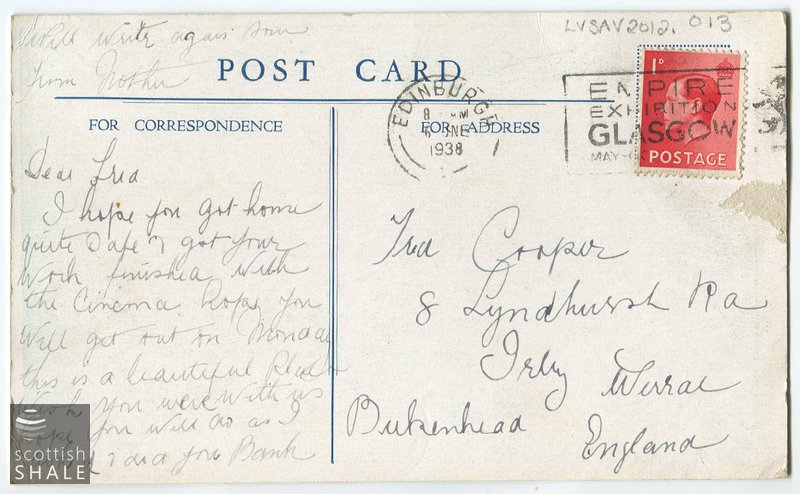 LVSAV2012.013
Will write again soon
From Mother
POST CARD
FOR CORRESPONDENCE
FOR ADDRESS
EDINBURGH
8 PM
NE
1938
EMPIRE
EXHIBITION
GLASGOW
MAY-
1D
POSTAGE
Dear Fred
I hope you got home
quite Safe & got your
Work finished with
the Cinema hope you
Will get out on Monday
this is a beautiful
you were with us
you will do as I
& did you Bank
Fred Cooper
8 Lyndhurst Rd
Irby Wirral
Birkenhead
England
scottish
SHALE